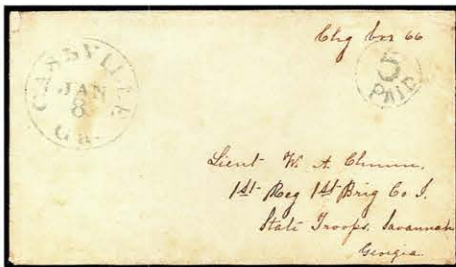 Chg box 66
CASSVILLE
JAN
8
Ga.
5
PAID
Lieut W. A. Chunn,
1st Reg 1st Brig Co I.
State Troops, Savannah
Georgia